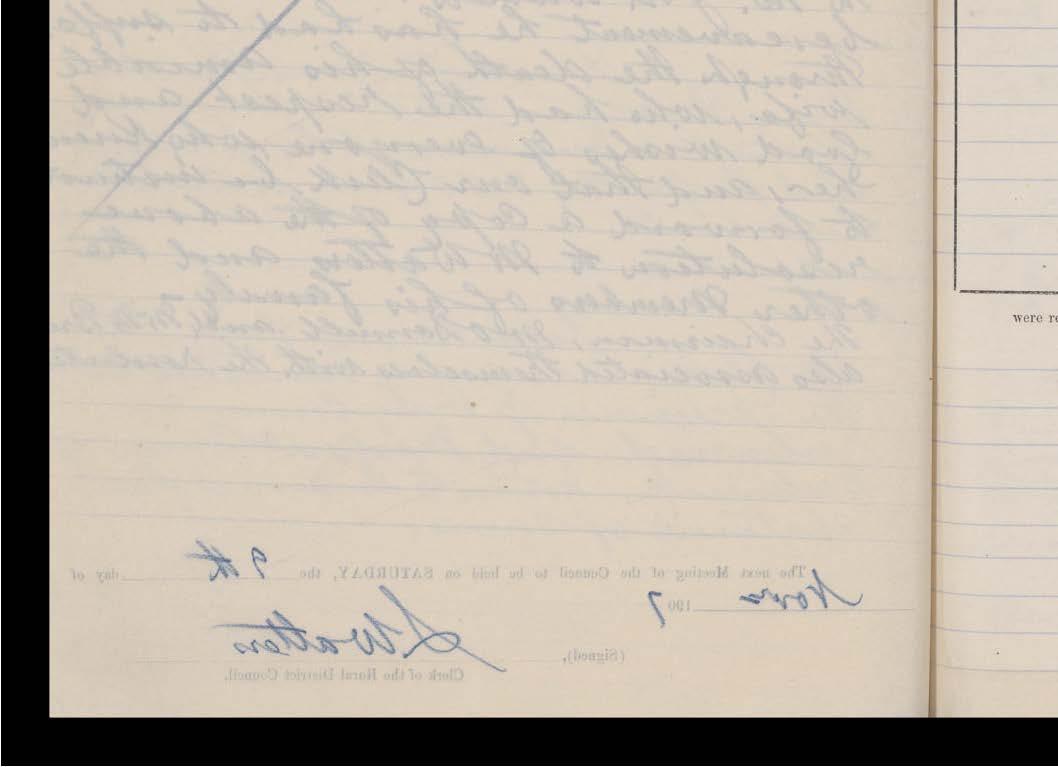 bereavement he has had to
through the death of his
wife, who had the respect and
good wishes of everyone who knew
her, and that our Clerk be
to forward a copy of the above
resolution to Mr and the
other Members of his family
The Chairman, and
also associated themselves with the
were re
The next Meeting of the Council to be held on SATURDAY, the 9th day of
Novr 1907
(Signed),
Clerk of the Rural District Council.